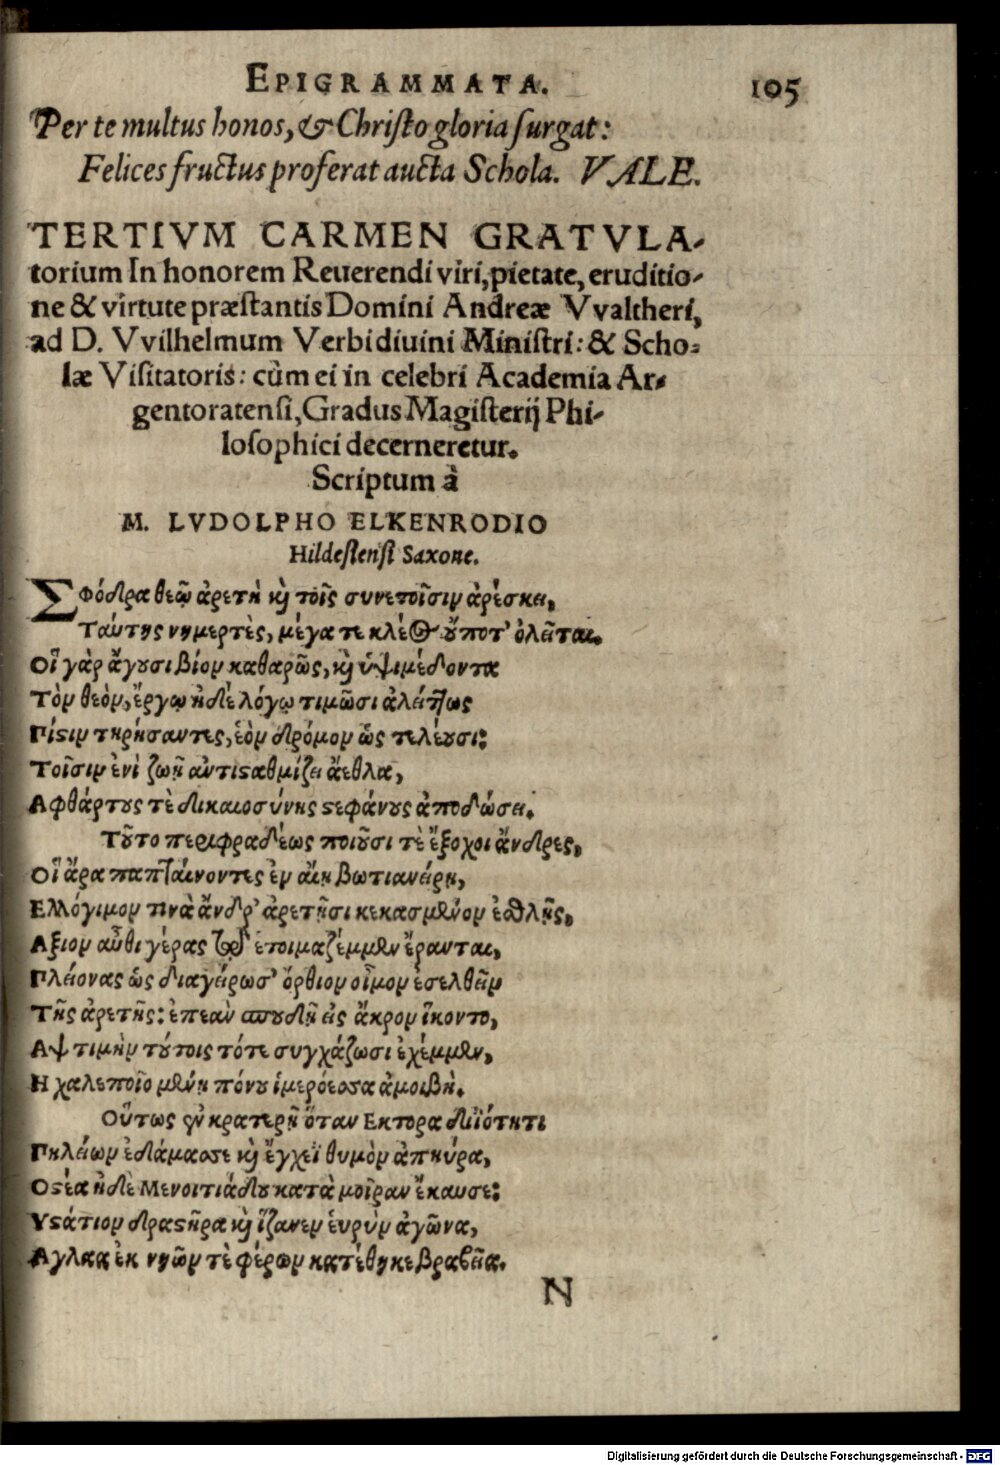 EPIGRAMMATA. 105
Per te multus honos, & Christo gloria surgat:
Felices fructus proferat aucta Schola. VALE.
TERTIVM CARMEN GRATVLA-
torium In honorem Reuerendi viri, pietate, eruditio-
ne & virtute præstantis Domini Andreæ Vvaltheri,
ad D. Vvilhelmum Verbi diuini Ministri: & Scho-
læ Visitatoris: cùm ei in celebri Academia Ar-
gentoratensi, Gradus Magisterij Phi-
losophici decerneretur.
Scriptum à
M. LVDOLPHO ELKENRODIO
Hildesiensi Saxone.
Σφόδρα θεῷ ἀρετὴ καὶ τοῖς συνετοῖσιν ἀρέσκει,
Ταύτης νημερτὲς, μέγα τε κλέος οὔποτ' ὀλεῖται.
Οἳ γὰρ ἄγουσι βίον καθαρῶς, καὶ ὑψιμέδοντα
Τὸν θεὸν, ἔργῳ ἠδὲ λόγῳ τιμῶσι ἀλήπτως
Πίστιν τηρήσαντες, ἑὸν δρόμον ὡς τελέουσι:
Τοῖσιν ἐνὶ ζωῇ ἀντισταθμίζει ἄεθλα,
Αφθάρτους τὲ δικαιοσύνης στεφάνους ἀποδώσει.
Τοῦτο περιφραδέως ποιοῦσι τὲ ἔξοχοι ἄνδρες,
Οἳ ἄρα παπταίνοντες ἐν αἴῃ βωτιανείρῃ,
Ελλόγιμον τινὰ ἄνδρ' ἀρετῇσι κεκασμένον ἐσθλῇς,
Αξιον αὖθι γέρας τῷδ' ἑτοιμαζέμμεν ἔρανται,
Πλείονας ὡς διαγείρωσ' ὄρθιον οἶμον ἐσελθεῖν
Τῆς ἀρετῆς: ἐπεὰν σπουδῇ εἰς ἄκρον ἵκοντο,
Αψ τιμὴν τούτοις τότε συγχάζωσι ἐχέμμεν,
Η χαλεποῖο μένῃ πόνου ἱμερόεσσα ἀμοιβὴ.
Οὕτως ἐν κρατερῇ ὅταν Εκτορα δηϊότητι
Πηλείων ἐδάμασσε καὶ ἔγχεϊ θυμὸν ἀπηύρα,
Οστέα ἠδὲ Μενοιτιάδου κατὰ μοῖραν ἔκαυσε:
Υστάτιον δραστῆρα καὶ ἵζανεν εὐρὺν ἀγῶνα,
Αγλαα ἐκ νηῶν τὲ φέρων κατέθηκε βραβεῖα.
N
Digitalisierung gefördert durch die Deutsche Forschungsgemeinschaft - DFG